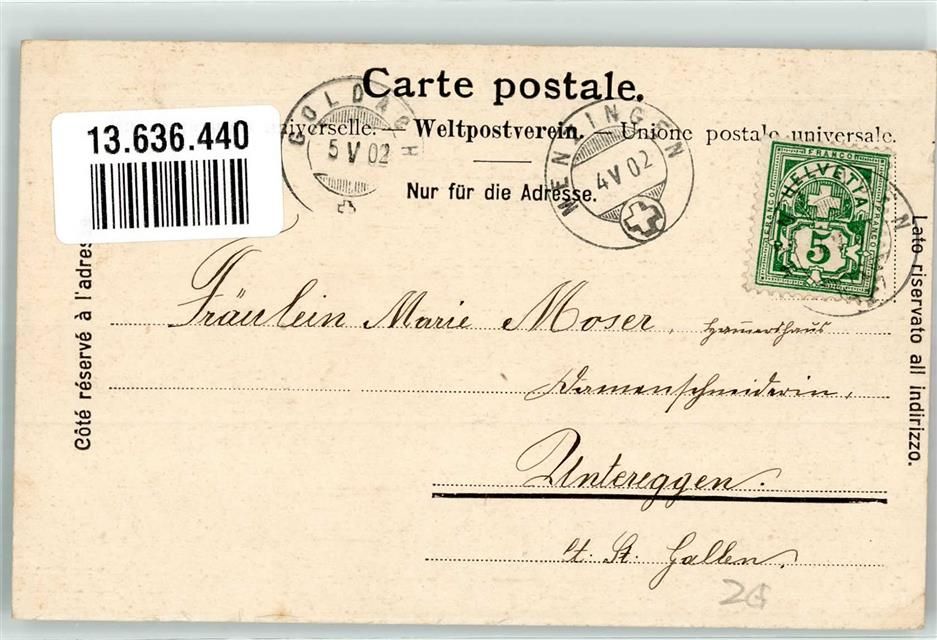 Carte postale.
13.636.440
GOLDACH
5 V 02
MENZINGEN
4 V 02
universelle. — Weltpostverein. — Unione postale universale.
Nur für die Adresse.
FRANCO
HELVETIA
5
Côté réservé à l'adres
Lato riservato all indirizzo.
Fräulein Marie Moser,
Damenschneiderin,
Untereggen.
Ct. St. Gallen.